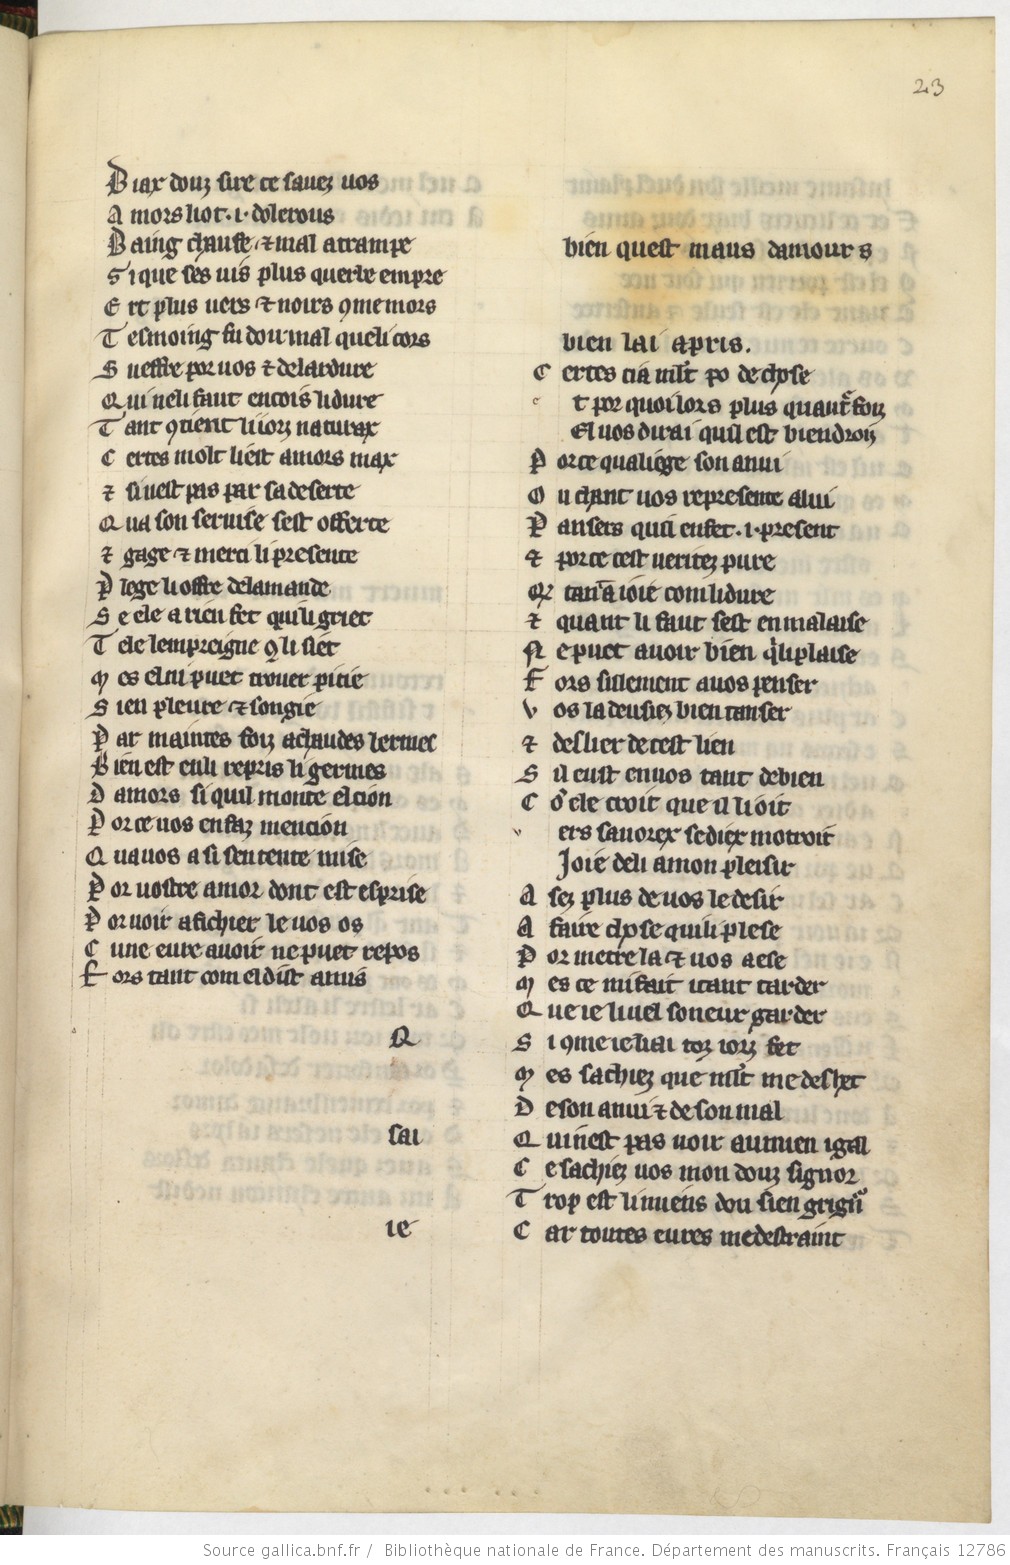 23
Biax douz sire ce savez vos
Amors liot .i. dolerous
Baing chaufe ⁊ mal atrampe
Si que ses vis plus quer be empre
Ert plus vers ⁊ noirs ꝯme mors
Tesmoing fu dou mal que li cors
Sueffre por vos ⁊ de lardure
Qui ne li faut encois li dure
Tant ꝯtient li iorz naturax
Certes molt li est amors max
⁊ si nest pas par sa deserte
Qua son servise sest offerte
⁊ gage ⁊ merci li presente
Plege li offre de lamande
Se ele a rien fet qui li griet
Tele lempreigne q̄ li siet
Mes el ni puet trover pitie
Sien pleure ⁊ songie
Par maintes foiz achaudes lermes
Bien est en li repris li germes
Damors si quil monte el cion
Por ce vos en faz mencion
Qua vos a si sentente mise
Por vostre amor dont est esprise
Por voir afichier le vos os
Cune eure avoir ne puet repos
Fors tant com el dust anuis
Q
sai
ie
bien quest maus damours
bien lai apris.
Certes ci a mlt po de chose
et por quoi lors plus quautrefoiz
El vos dirai quil est bien droiz
Por ce qualiege son anui
Ou chant vos represente alui
Pansers qui en fet .i. present
⁊ por ce cest veritez pure
tant a ioie com li dure
⁊ quant li faut sest en malaise
Ne puet avoir bien qi li plaise
Fors sillement a vos penser
Vos la deusiez bien tanser
⁊ deslier de cest lien
Sil eust en vos tant de bien
Cō ele croit que il li oit
vers savorex se diex motroit
Joie de li a mon pleisir
Asez plus de vos le desir
A faire chose qui li plese
Por metre la ⁊ vos a ese
Mes ce mi fait itant tarder
Que ie li vel son eur garder
Si ꝯme ie lai toz iorz fet
Mes sachiez que mlt me deshet
De son anui ⁊ de son mal
Qui nest pas voir au mien igal
Ce sachiez vos mon douz signor
Trop est li miens dou sien grignor
Car toutes eures me destraint
Source gallica.bnf.fr / Bibliothèque nationale de France. Département des manuscrits. Français 12786